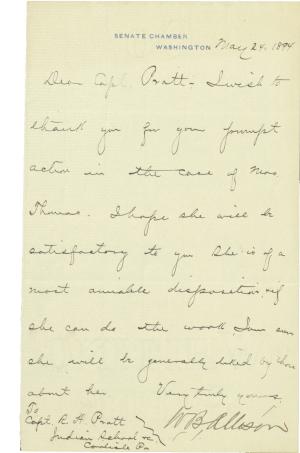 SENATE CHAMBER
WASHINGTON May 24, 1894
Dear Capt. Pratt - I wish to
thank you for your prompt
action in the case of Mrs.
Thomas. I hope she will be
satisfactory to you She is of a
most amiable disposition, & if
she can do the work, I am sure
she will be generally liked by those
about her Very truly yours,
W. B. Allison
To
Capt. R. H. Pratt
Indian School &c
Carlisle Pa